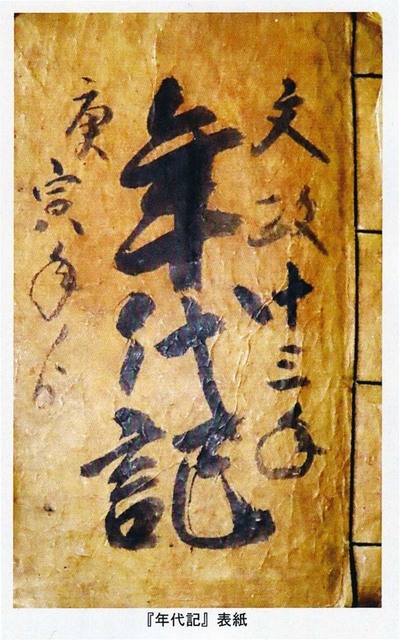 文政十三年
年代記
庚寅年ゟ
『年代記』表紙